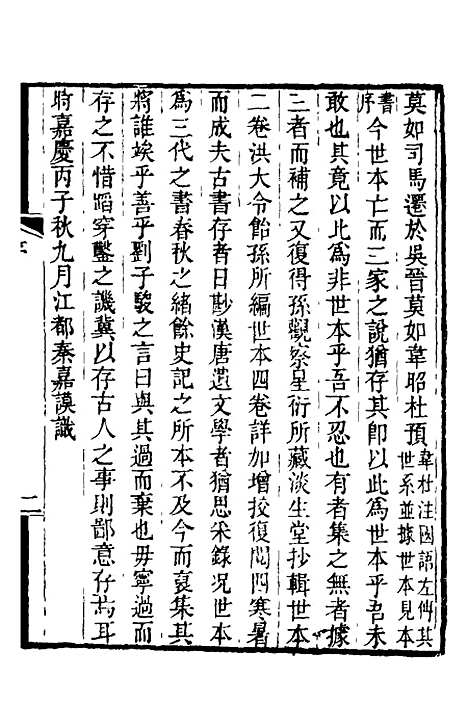 莫如司馬遷於吳晉莫如韋昭杜預韋杜注國語左傳其世系並據世本見本
書序今世本亡而三家之說猶存其卽以此爲世本乎吾未
敢也其竟以此爲非世本乎吾不忍也有者集之無者據
三者而補之又復得孫觀察星衍所藏淡生堂抄輯世本
二卷洪大令飴孫所編世本四卷詳加增挍復閱四寒暑
而成夫古書存者日尠漢唐遺文學者猶思采錄况世本
爲三代之書春秋之緒餘史記之所本不及今而裒集其
將誰竢乎善乎劉子駿之言曰與其過而棄也毋寧過而
存之不惜蹈穿鑿之譏冀以存古人之事則鄙意存焉耳
時嘉慶丙子秋九月江都秦嘉謨識
二